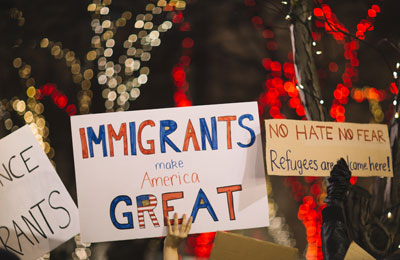 NCE
RANTS
IMMIGRANTS
make
America
GREAT
NO HATE NO FEAR
Refugees are welcome here!